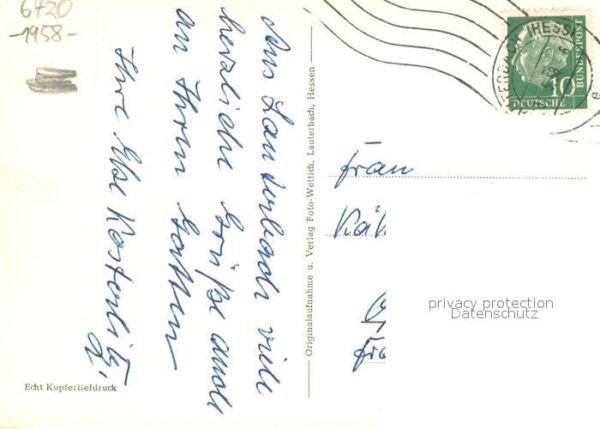 6420
-1958-
Aus Lauterbach viele
herzliche Grüße auch
an Ihren Gatten
Ihre Else
Originalaufnahme u. Verlag Foto-Wettich, Lauterbach, Hessen
Echt Kupfertiefdruck
(HESS
10
DEUTSCHE
BUNDESPOST
Frau
Kät
Fra
privacy protection
Datenschutz